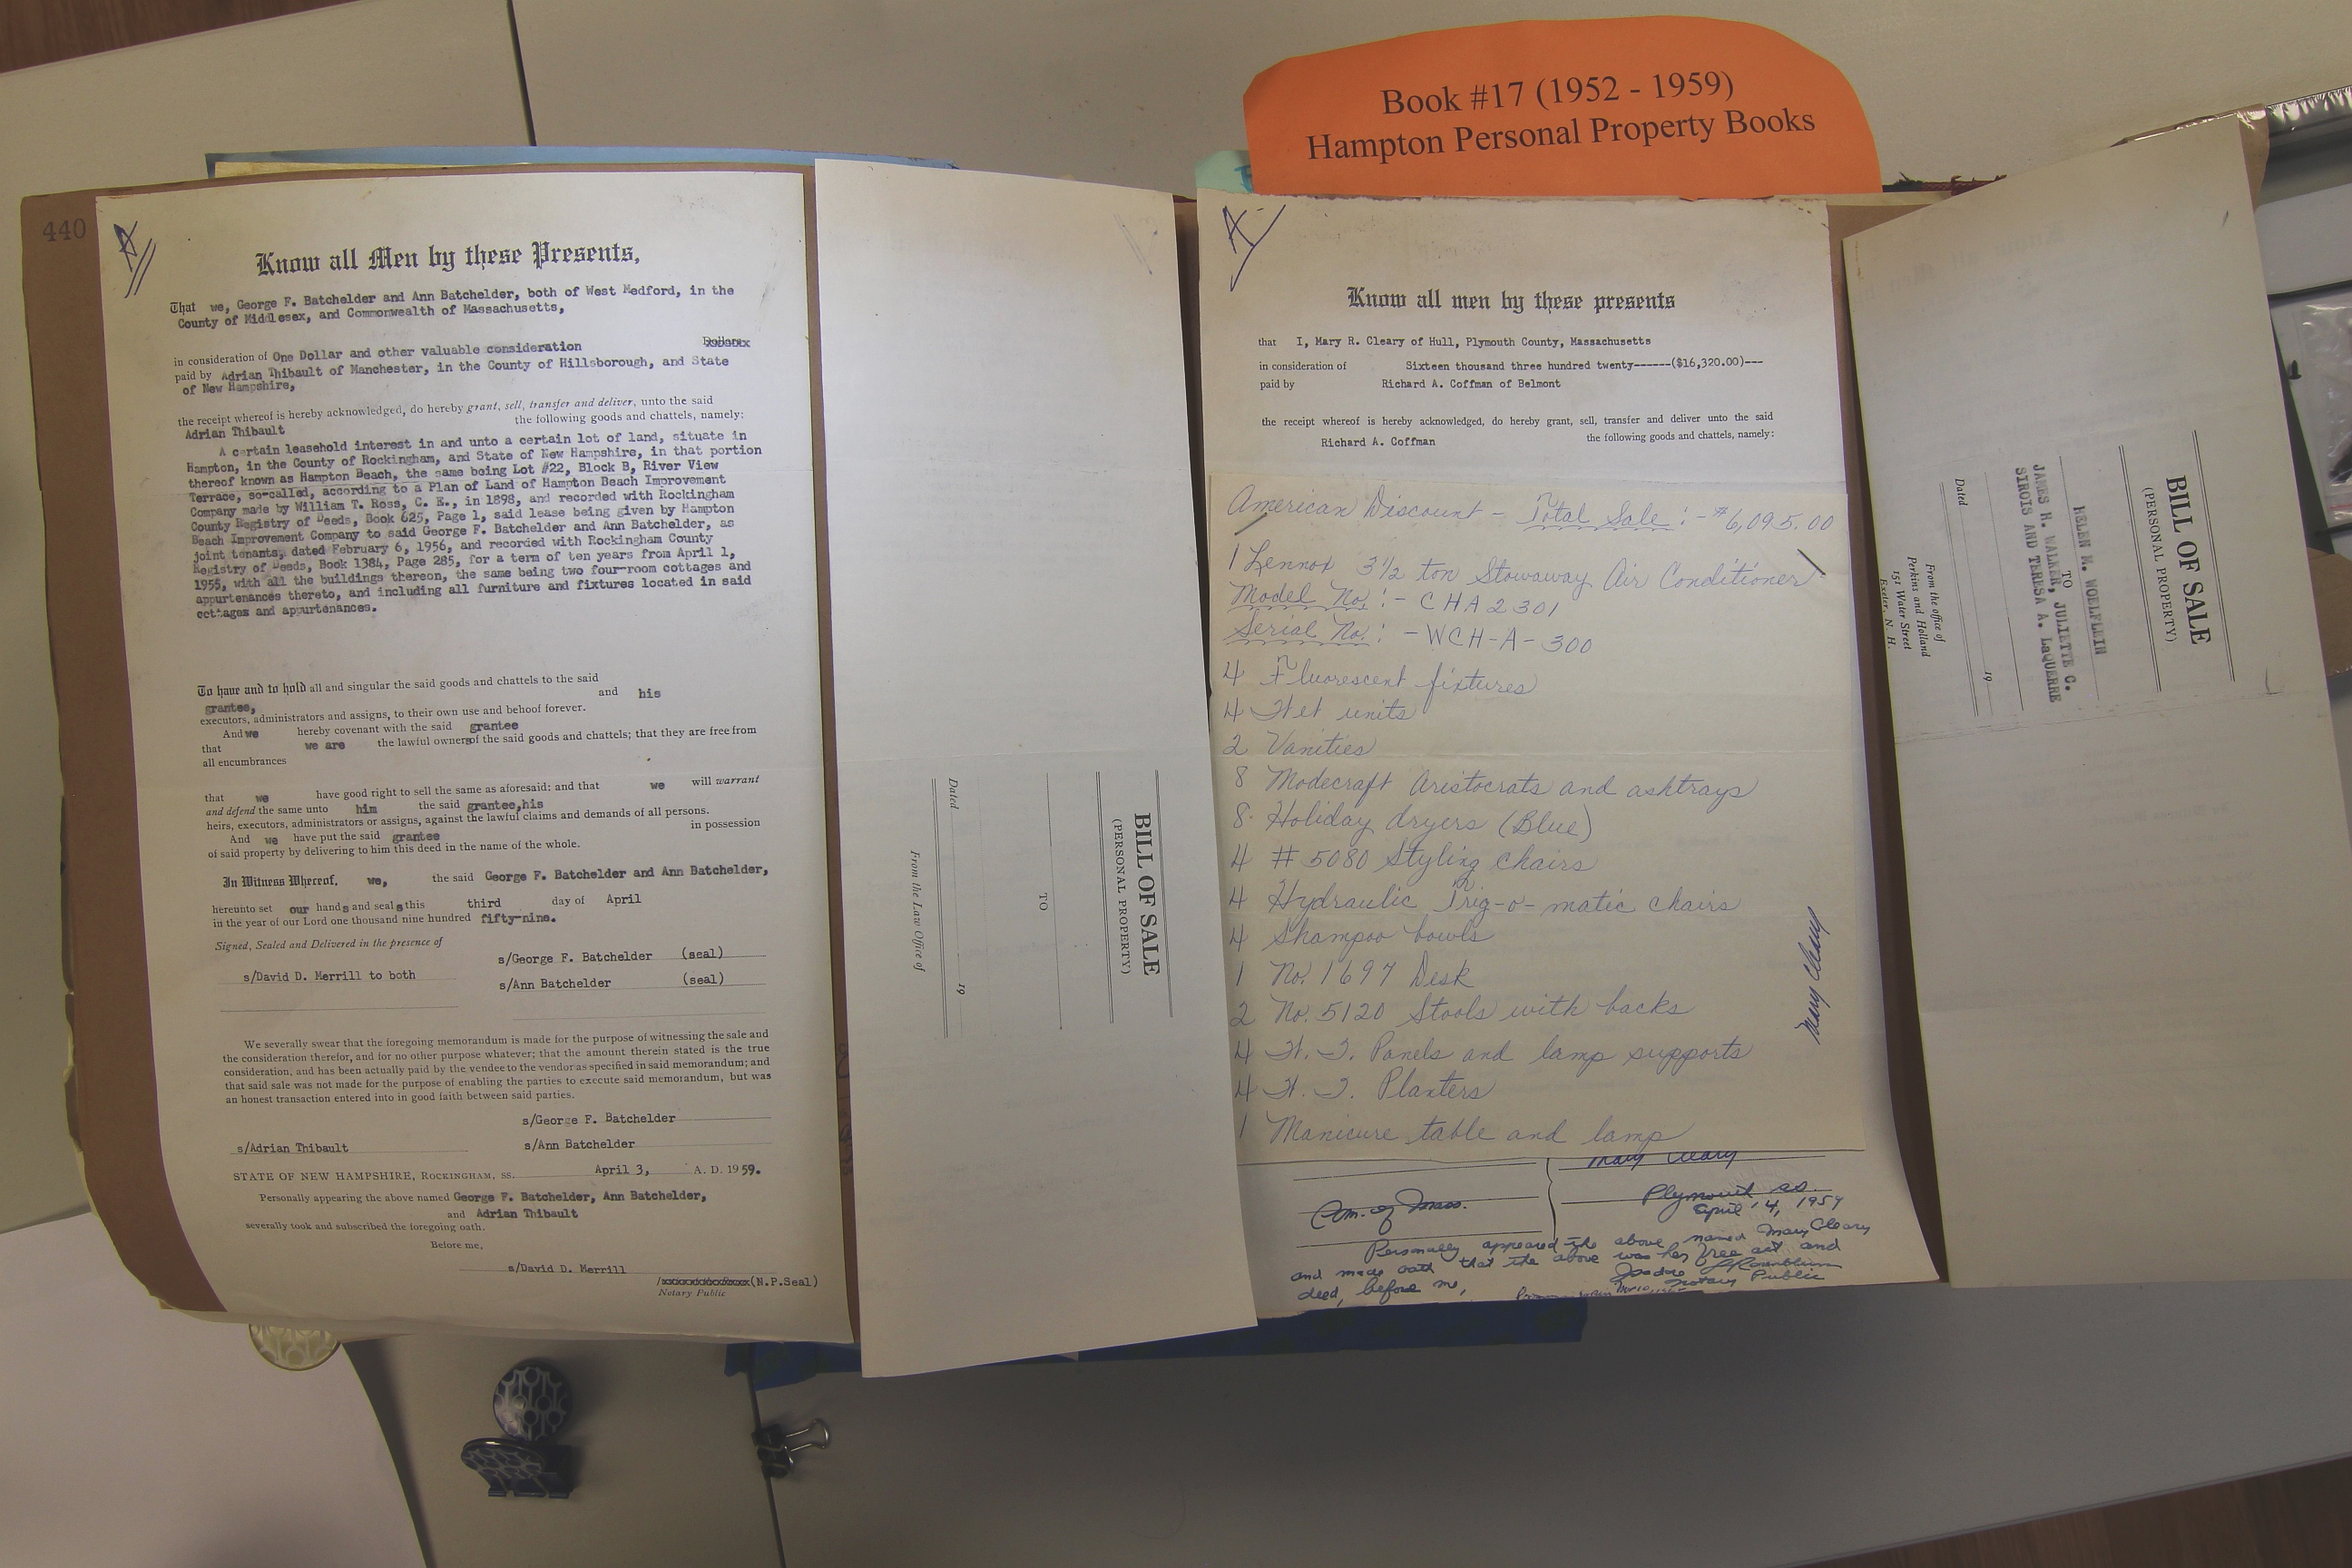 Book #17 (1952 - 1959)
Hampton Personal Property Books
440
A
Know all Men by these Presents,
That we, George F. Batchelder and Ann Batchelder, both of West Medford, in the
County of Middlesex, and Commonwealth of Massachusetts,
in consideration of One Dollar and other valuable consideration Dollars
paid by Adrian Thibault of Manchester, in the County of Hillsborough, and State
of New Hampshire,
the receipt whereof is hereby acknowledged, do hereby grant, sell, transfer and deliver, unto the said
Adrian Thibault the following goods and chattels, namely:
A certain leasehold interest in and unto a certain lot of land, situate in
Hampton, in the County of Rockingham, and State of New Hampshire, in that portion
thereof known as Hampton Beach, the same being Lot #22, Block B, River View
Terrace, so-called, according to a Plan of Land of Hampton Beach Improvement
Company made by William T. Ross, C. E., in 1898, and recorded with Rockingham
County Registry of Deeds, Book 625, Page 1, said lease being given by Hampton
Beach Improvement Company to said George F. Batchelder and Ann Batchelder, as
joint tenants, dated February 6, 1956, and recorded with Rockingham County
Registry of Deeds, Book 1384, Page 285, for a term of ten years from April 1,
1955, with all the buildings thereon, the same being two four-room cottages and
appurtenances thereto, and including all furniture and fixtures located in said
cottages and appurtenances.
To have and to hold all and singular the said goods and chattels to the said
grantee, and his
executors, administrators and assigns, to their own use and behoof forever.
And we hereby covenant with the said grantee
that we are the lawful owners of the said goods and chattels; that they are free from
all encumbrances
that we have good right to sell the same as aforesaid: and that we will warrant
and defend the same unto him the said grantee, his
heirs, executors, administrators or assigns, against the lawful claims and demands of all persons.
And we have put the said grantee in possession
of said property by delivering to him this deed in the name of the whole.
In Witness Whereof, we, the said George F. Batchelder and Ann Batchelder,
hereunto set our hands and seals this third day of April
in the year of our Lord one thousand nine hundred fifty-nine.
Signed, Sealed and Delivered in the presence of
s/George F. Batchelder (seal)
s/David D. Merrill to both
s/Ann Batchelder (seal)
We severally swear that the foregoing memorandum is made for the purpose of witnessing the sale and
the consideration therefor, and for no other purpose whatever; that the amount therein stated is the true
consideration, and has been actually paid by the vendee to the vendor as specified in said memorandum; and
that said sale was not made for the purpose of enabling the parties to execute said memorandum, but was
an honest transaction entered into in good faith between said parties.
s/George F. Batchelder
s/Adrian Thibault s/Ann Batchelder
STATE OF NEW HAMPSHIRE, ROCKINGHAM, SS. April 3, A. D. 1959.
Personally appearing the above named George F. Batchelder, Ann Batchelder,
and Adrian Thibault
severally took and subscribed the foregoing oath.
Before me,
s/David D. Merrill
(N.P.Seal)
Notary Public
BILL OF SALE
(PERSONAL PROPERTY)
TO
Dated 19
From the Law Office of
A
Know all men by these presents
that I, Mary R. Cleary of Hull, Plymouth County, Massachusetts
in consideration of Sixteen thousand three hundred twenty------($16,320.00)---
paid by Richard A. Coffman of Belmont
the receipt whereof is hereby acknowledged, do hereby grant, sell, transfer and deliver unto the said
Richard A. Coffman the following goods and chattels, namely:
American Discount - Total Sale : - $6,095.00
1 Lennox 3 1/2 ton Stowaway Air Conditioner -
Model No. : - CHA2301
Serial No. : - WCH-A-300
4 Fluorescent fixtures
4 Wet units
2 Vanities
8 Modecraft Aristocrats and ashtrays
8 Holiday dryers (Blue)
4 # 5080 Styling chairs
4 Hydraulic Trig-o-matic chairs
4 Shampoo bowls
1 No. 1697 Desk
2 No. 5120 Stools with backs
4 Panels and lamp supports
4 Planters
1 Manicure table and lamp
Mary Cleary
Mary Cleary
Com. of Mass. Plymouth ss.
April 4, 1959
Personally appeared the above named Mary Cleary
and made oath that the above was her free act and
deed, before me,
Notary Public
BILL OF SALE
(PERSONAL PROPERTY)
HELEN M. WOELFLEIN
TO
JAMES H. WALKER, JULIETTE C.
SIROIS AND TERESA A. LaQUERRE
Dated 19
From the office of
Perkins and Holland
151 Water Street
Exeter, N. H.